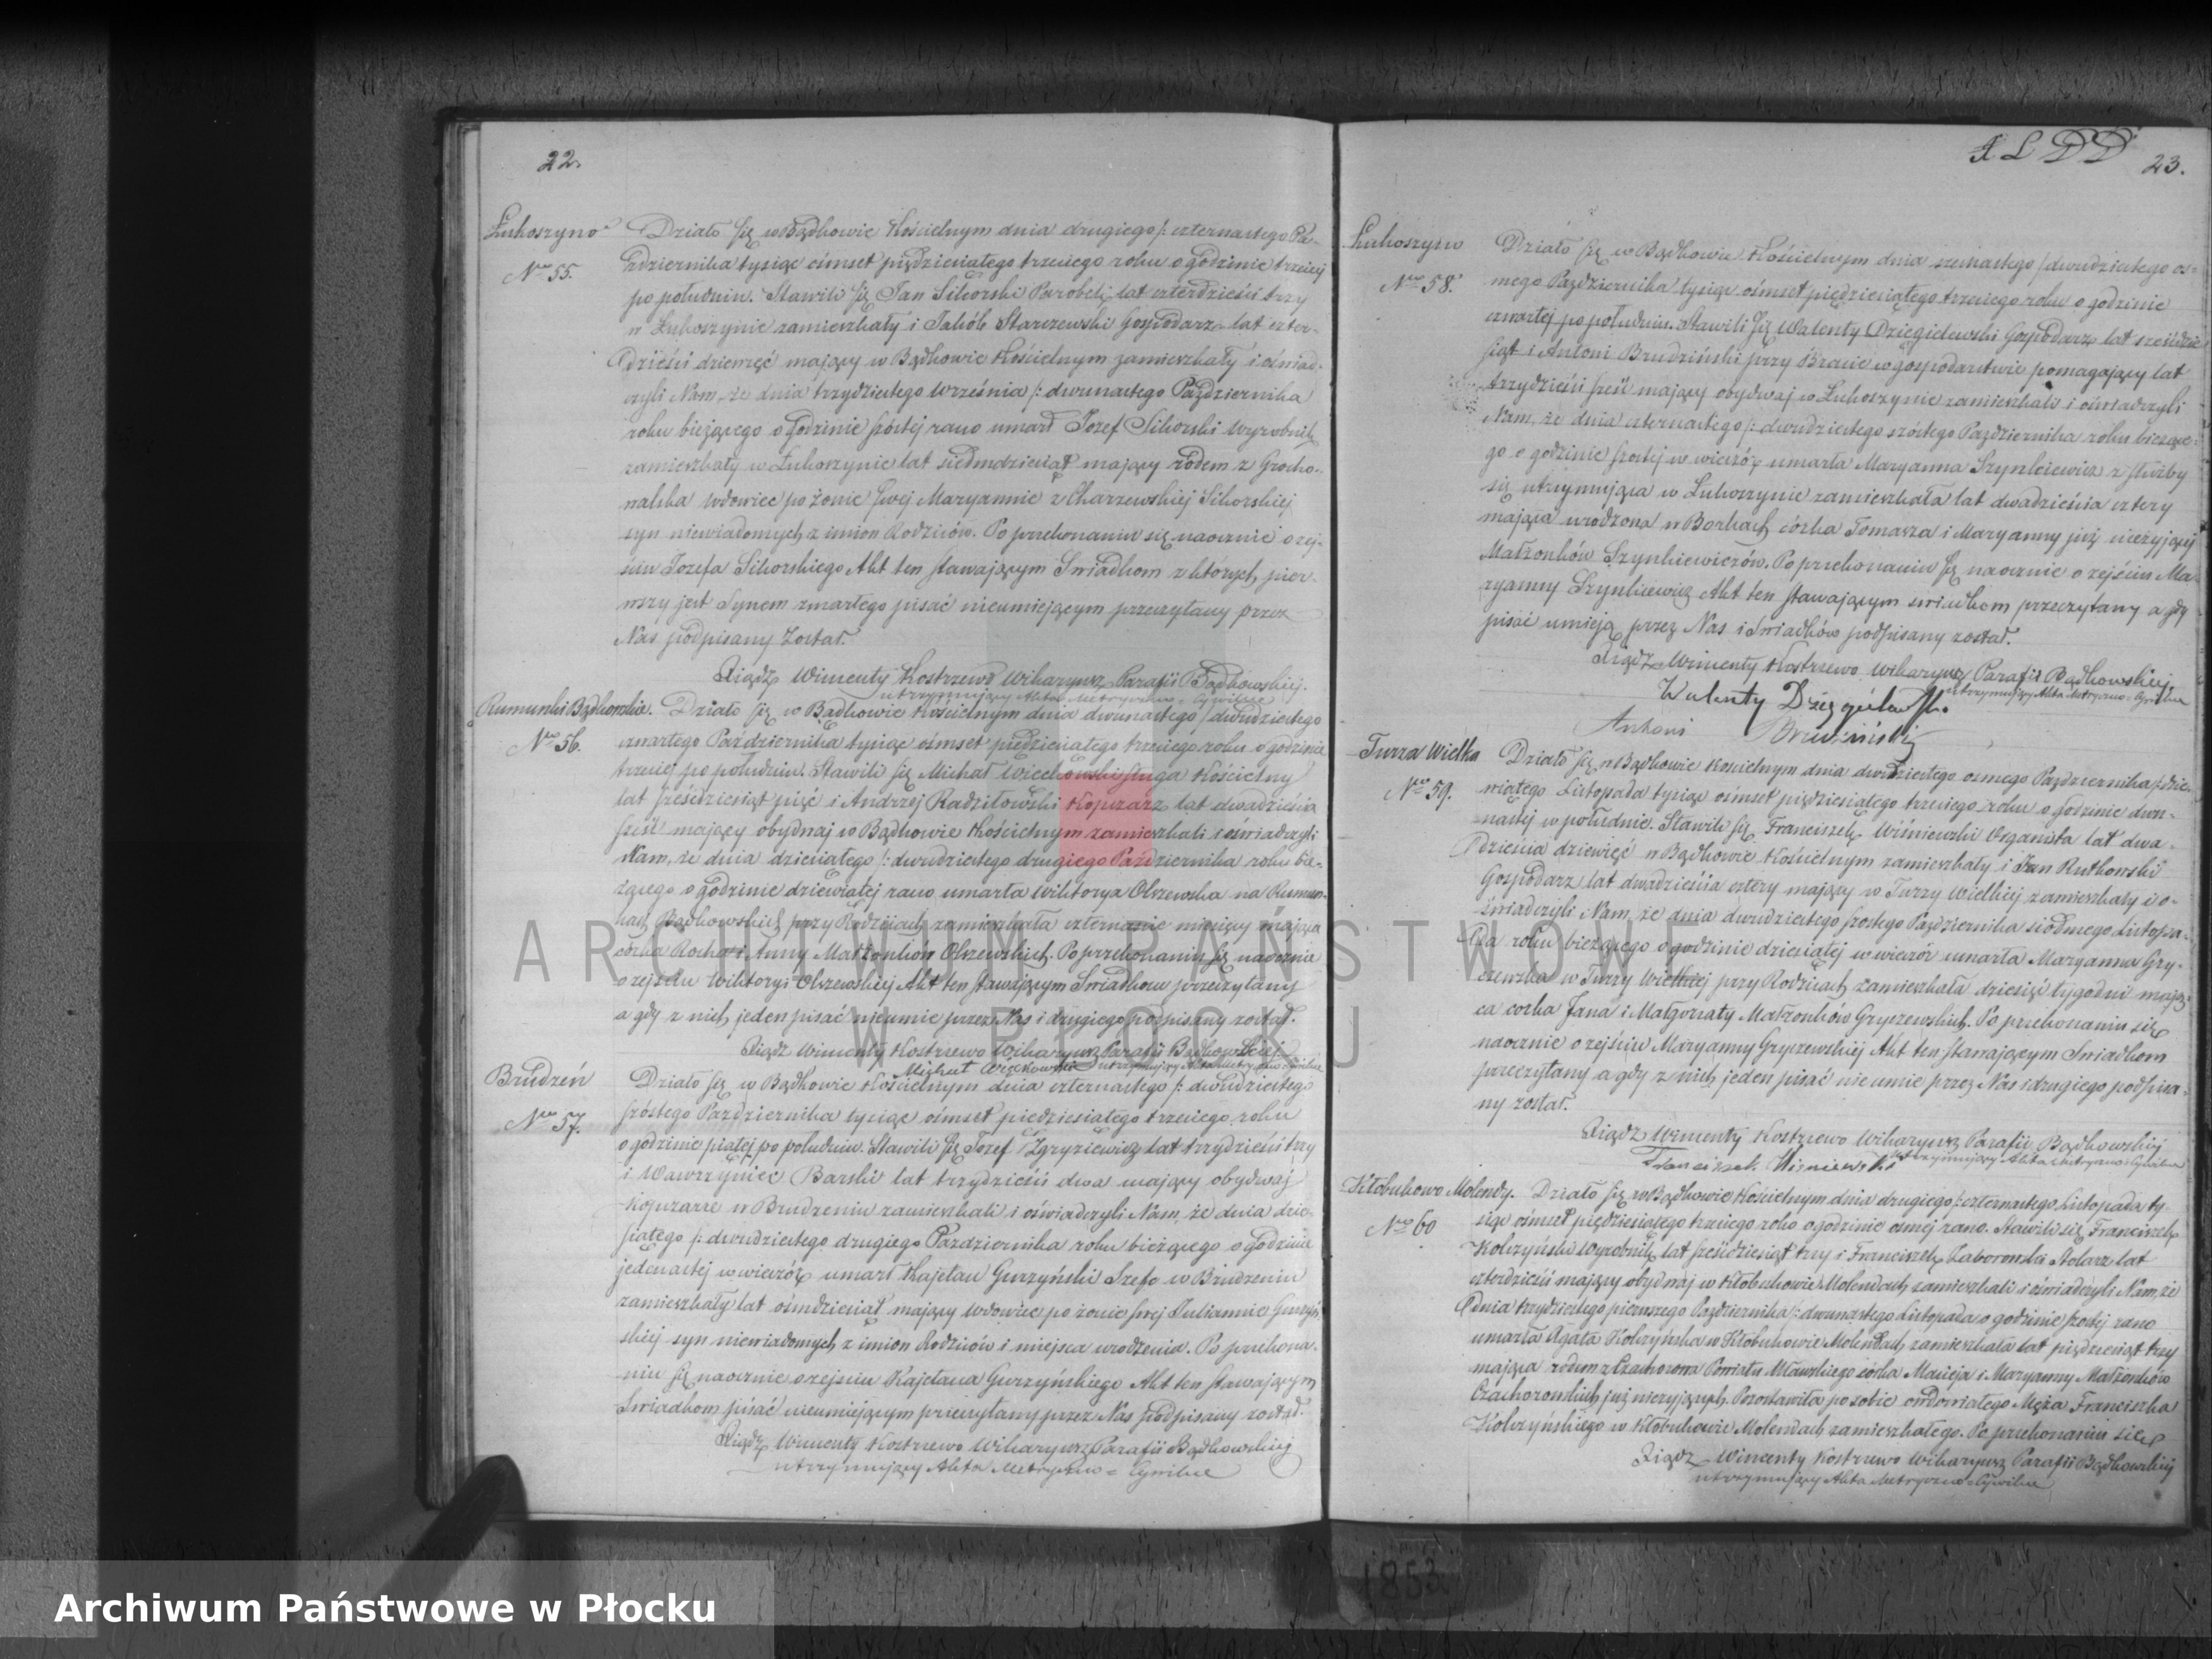 22.
Łukoszyno
Nro 55.
Działo się w Bądkowie Kościelnym dnia drugiego /: czternastego Pa-
ździernika tysiąc ośmset pięćdziesiątego trzeciego roku o godzinie trzeciej
po południu. Stawili się Jan Sikorski Parobek lat czterdzieści trzy
w Łukoszynie zamieszkały i Jakób Starczewski Gospodarz lat czter-
dzieści dziewięć mający w Bądkowie Kościelnym zamieszkały i oświad-
czyli Nam, że dnia trzydziestego Września /: dwunastego Października
roku bieżącego o godzinie szóstej rano umarł Jozef Sikorski wyrobnik
zamieszkały w Łukoszynie lat siedmdziesiąt mający rodem z Grocho-
nalska wdowiec po żonie swej Maryannie z Charzewskiej Sikorskiej
syn niewiadomych z imion Rodziców. Po przekonaniu się naocznie o zej-
ściu Jozefa Sikorskiego Akt ten stawającym Swiadkom z których pier-
wszy jest Synem zmarłego pisać nieumiejącym przeczytany przez
Nas podpisany został.
Xiądz Wincenty Kostrzewo Wikaryusz Parafii Bądkowskiej.
utrzymujący Akta Metryczno-Cywilne
Rumunki Bądkowskie.
Nro 56.
Działo się w Bądkowie Kościelnym dnia dwunastego / dwudziestego
czwartego Października tysiąc ośmset pięćdziesiątego trzeciego roku o godzinie
trzeciej po południu. Stawili się Michał Więckowski sługa Kościelny
lat sześćdziesiąt pięć i Andrzej Radziłowski Kopczarz lat dwadzieścia
sześć mający obydwaj w Bądkowie Kościelnym zamieszkali i oświadczyli
Nam, że dnia dziesiątego /: dwudziestego drugiego Października roku bie-
żącego o godzinie dziewiątej rano umarła Wiktorya Olszewska na Rumun-
kach Bądkowskich przy Rodzicach zamieszkała czternaście miesięcy mająca
córka Rocha i Anny Małżonków Olszewskich. Po przekonaniu się naocznie
o zejściu Wiktoryi Olszewskiej Akt ten stawającym Swiadkom przeczytany
a gdy z nich jeden pisać nieumie przez Nas i drugiego podpisany został.
Xiądz Wincenty Kostrzewo Wikaryusz Parafii Bądkowskiej
Michał Więckowski utrzymujący Akta Metryczno Cywilne
Brudzeń
Nro 57.
Działo się w Bądkowie Kościelnym dnia czternastego /: dwudziestego
szóstego Października tysiąc ośmset pięćdziesiątego trzeciego roku
o godzinie piątej po południu. Stawili się Jozef Zgryziewicz lat trzydzieści trzy
i Wawrzyniec Barski lat trzydzieści dwa mający obydwaj
Kopczarze w Brudzeniu zamieszkali i oświadczyli Nam, że dnia dzie-
siątego /: dwudziestego drugiego Października roku bieżącego o godzinie
jedenastej w wieczór umarł Kajetan Gurzyński Szefc w Brudzeniu
zamieszkały lat ośmdziesiąt mający wdowiec po żonie swej Juliannie Gurzyń-
skiej syn niewiadomych z imion Rodziców i miejsca urodzenia. Po przekona-
niu się naocznie o zejściu Kajetana Gurzyńskiego Akt ten stawającym
Swiadkom pisać nieumiejącym przeczytany przez Nas podpisany został.
Xiądz Wincenty Kostrzewo Wikaryusz Parafii Bądkowskiej
utrzymujący Akta Metryczno = Cywilne
23.
Łukoszyno
Nro 58.
Działo się w Bądkowie Kościelnym dnia szesnastego / dwudziestego os-
mego Października tysiąc ośmset pięćdziesiątego trzeciego roku o godzinie
czwartej po południu. Stawili się Walenty Dzięgielewski Gospodarz lat sześćdzie-
siąt i Antoni Brudziński przy Bracie w gospodarstwie pomagający lat
trzydzieści sześć mający obydwaj w Łukoszynie zamieszkali i oświadczyli
Nam, że dnia czternastego /: dwudziestego szóstego Października roku bieżące-
go o godzinie szóstej w wieczór umarła Maryanna Szynkiewicz z służby
się utrzymująca w Łukoszynie zamieszkała lat dwadzieścia cztery
mająca urodzona w Borkach córka Tomasza i Maryanny już nieżyjących
Małżonków Szynkiewiczów. Po przekonaniu się naocznie o zejściu Ma-
ryanny Szynkiewicz Akt ten stawającym swiadkom przeczytany a gdy
pisać umieją przez Nas i Swiadków podpisany został.
Xiądz Wincenty Kostrzewo Wikaryusz Parafii Bądkowskiej
utrzymujący Akta Metryczno-Cywilne
Walenty Dzięgielewski
Antoni Brudziński
Turza Wielka
Nro 59.
Działo się w Bądkowie Kościelnym dnia dwudziestego osmego Października / dzie-
wiątego Listopada tysiąc ośmset pięćdziesiątego trzeciego roku o godzinie dwu-
nastej w południe. Stawili się Franciszek Wiśniewski Organista lat dwa-
dzieścia dziewięć w Bądkowie Kościelnym zamieszkały i Jan Rutkowski
Gospodarz lat dwadzieścia cztery mający w Turzy Wielkiej zamieszkały i o-
świadczyli Nam, że dnia dwudziestego szóstego Października siódmego Listopa-
da roku bieżącego o godzinie dziesiątej w wieczór umarła Maryanna Gry-
czewska w Turzy Wielkiej przy Rodzicach zamieszkała dziesięć tygodni mają-
ca corka Jana i Małgorzaty Małżonków Gryczewskich. Po przekonaniu się
naocznie o zejściu Maryanny Gryczewskiej Akt ten stawającym Swiadkom
przeczytany a gdy z nich jeden pisać nie umie przez Nas i drugiego podpisa-
ny został.
Xiądz Wincenty Kostrzewo Wikaryusz Parafii Bądkowskiej
Franciszek Wiśniewski utrzymujący Akta Metryczno-Cywilne
Kłobukowo Molendy.
Nro 60
Działo się w Bądkowie Kościelnym dnia drugiego /: czternastego Listopada ty-
siąc ośmset pięćdziesiątego trzeciego roku o godzinie osmej rano. Stawili się Franciszek
Kolczyński Wyrobnik lat sześćdziesiąt trzy i Franciszek Zaborowski Stolarz lat
czterdzieści mający obydwaj w Kłobukowie Molendach zamieszkali i oświadczyli Nam, że
dnia trzydziestego pierwszego Października /: dwunastego Listopada o godzinie szóstej rano
umarła Agata Kolczyńska w Kłobukowie Molendach zamieszkała lat pięćdziesiąt trzy
mająca rodem z Czachorowa Powiatu Mławskiego córka Macieja i Maryanny Małżonków
Czachorowskich już nieżyjących. Pozostawiła po sobie owdowiałego Męża Franciszka
Kolczyńskiego w Kłobukowie Molendach zamieszkałego. Po przekonaniu się
Xiądz Wincenty Kostrzewo Wikaryusz Parafii Bądkowskiej
utrzymujący Akta Metryczno-Cywilne
1853
ARCHIWUM PAŃSTWOWE
W PŁOCKU
Archiwum Państwowe w Płocku